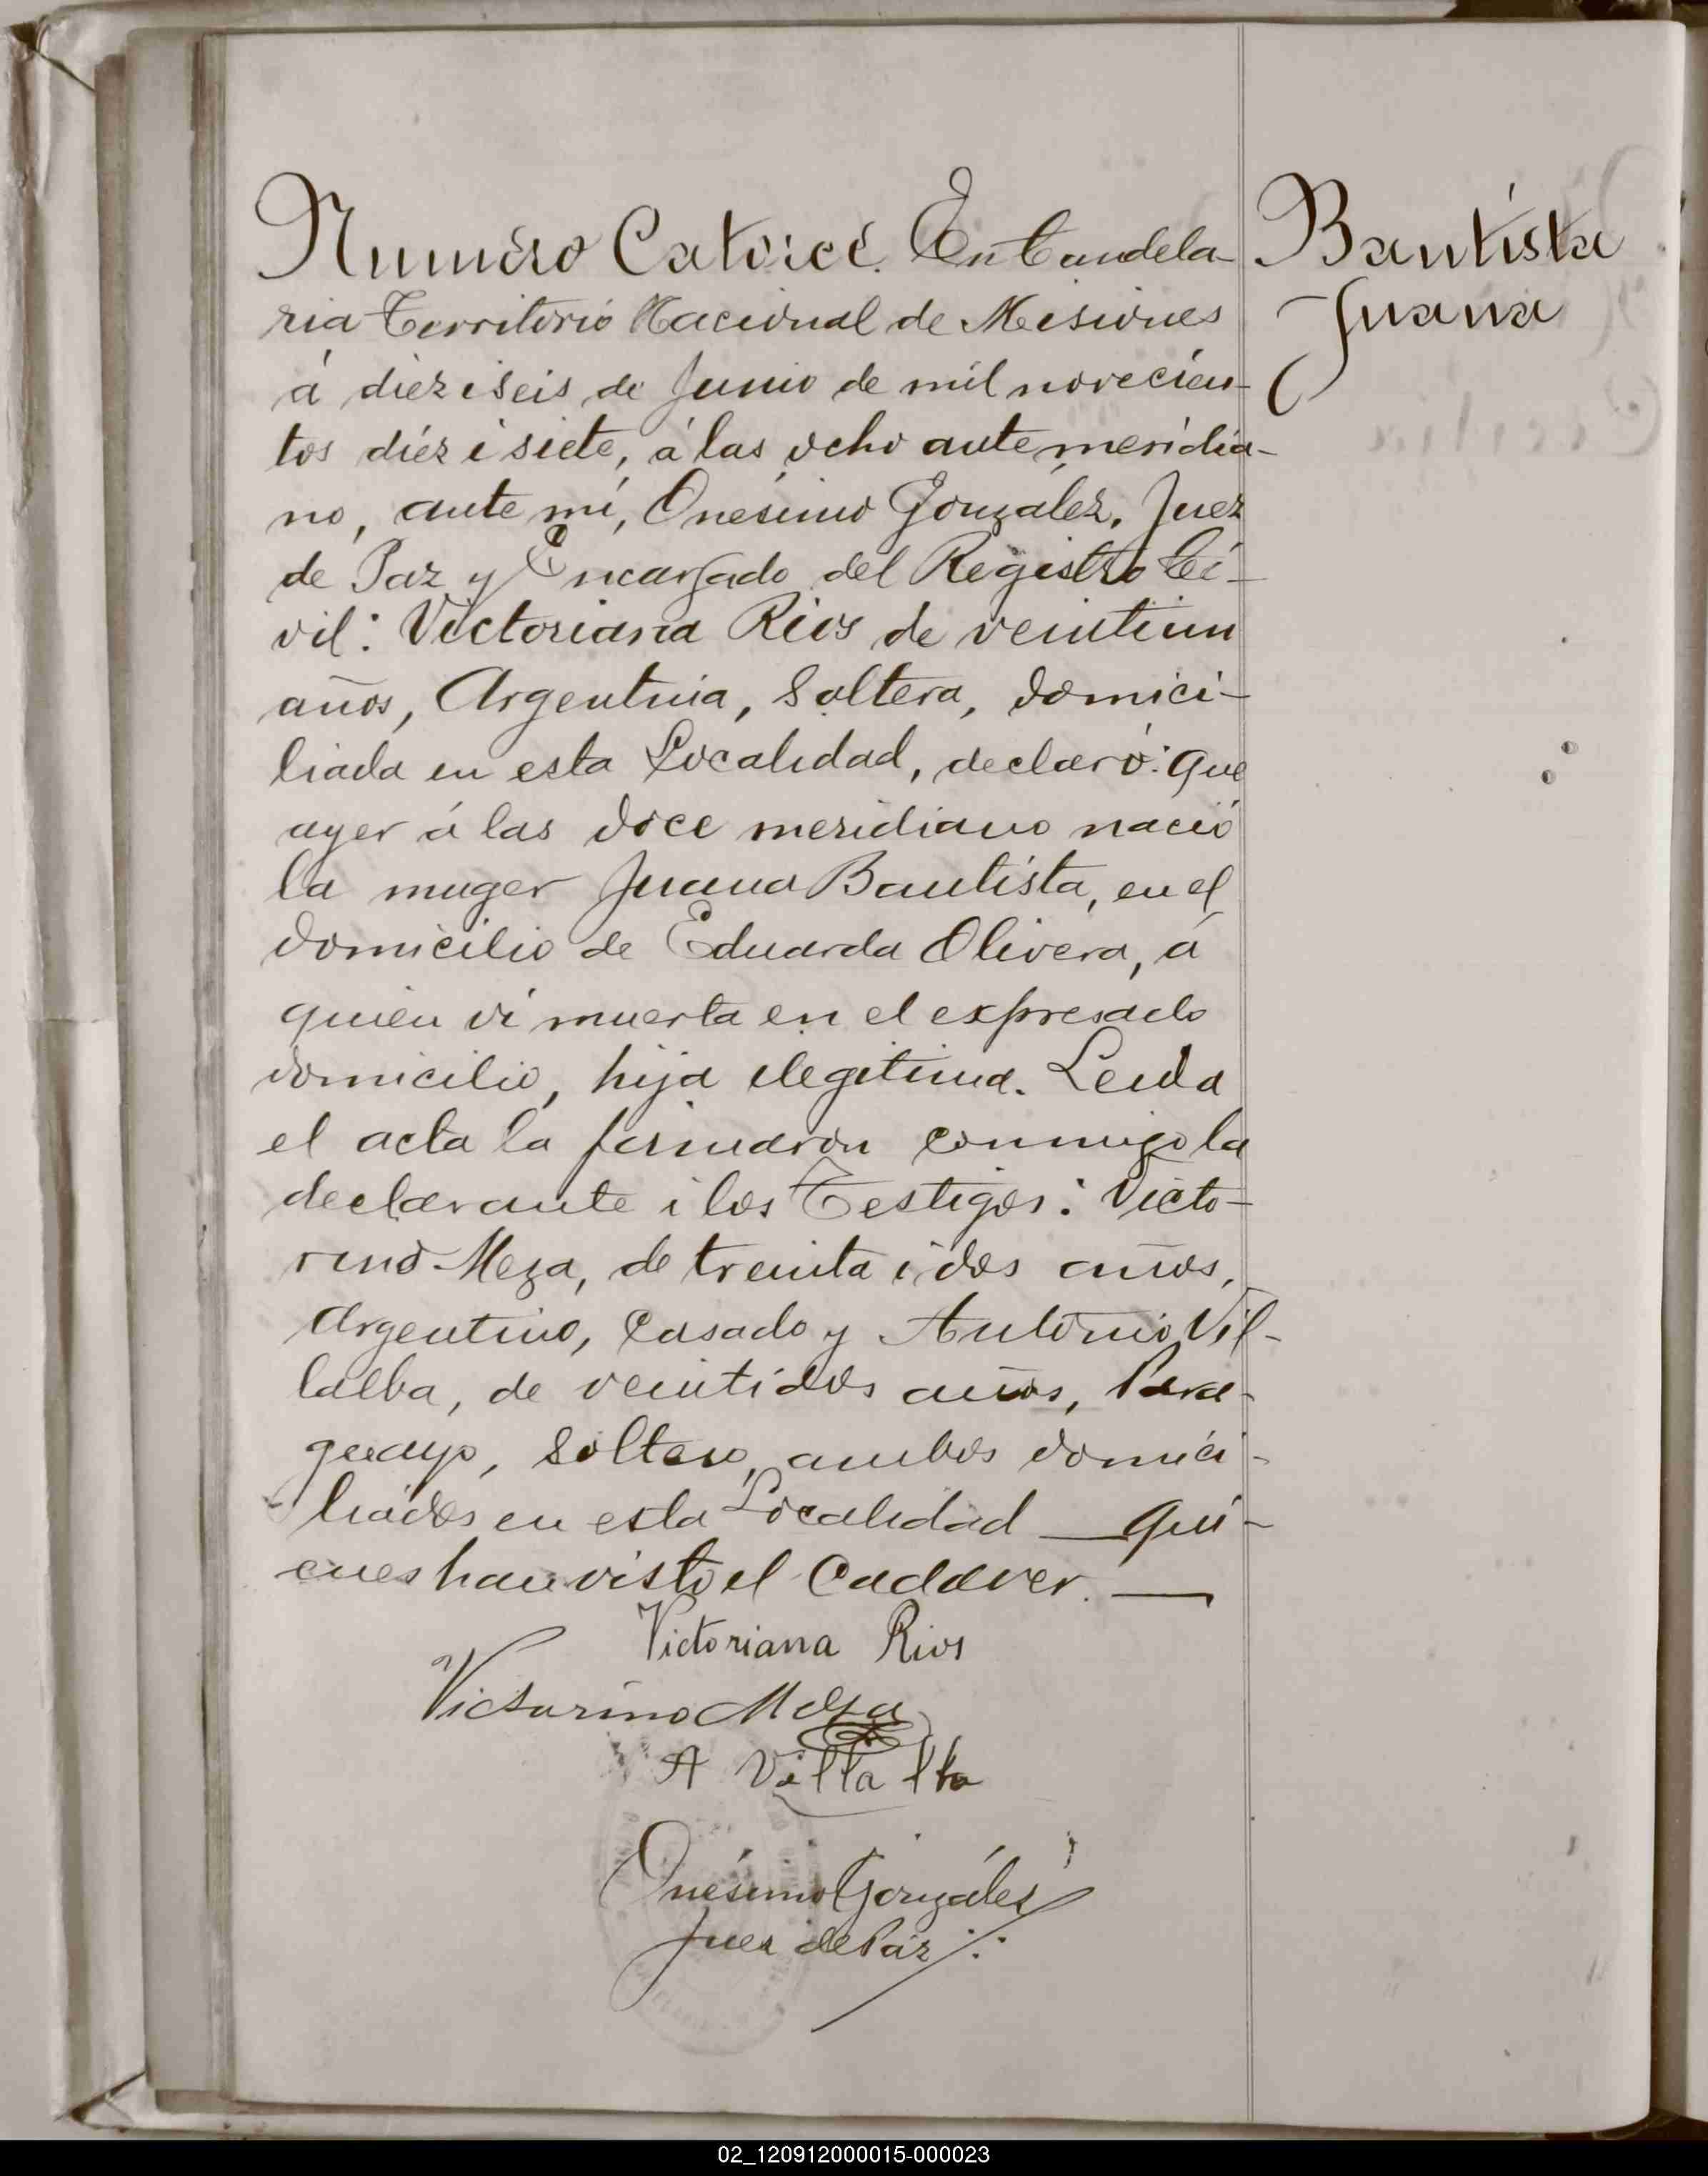 Numéro Catorce. En Candela-
ria Territorio Nacional de Misiones
á diez i seis de Junio de mil novecien-
tos diez i siete, á las ocho ante meridia-
no, ante mi, Onésimo González, Juez
de Paz y Encargado del Registro Ci-
vil: Victoriana Rios de veintiun
años, Argentina, Soltera, domici-
liada en esta Localidad, declaró: que
ayer á las doce meridiano nació
la muger Juana Bautista, en el
domicilio de Eduarda Olivera, á
quien vi muerta en el expresado
domicilio, hija ilegitima. Leida
el acta la firmaron conmigo la
declarante i los Testigos: Victo-
rino Meza, de treinta i dos años,
Argentino, Casado y Antonio Vil-
lalba, de veintidos años, Para-
guayo, Soltero, ambos domici-
liados en esta Localidad — Qui-
enes han visto el Cadaver. —
Victoriana Rios
Victarino Meza
A Villalba
Onésimo González
Juez de Paz
Bautista
Juana
02_120912000015-000023